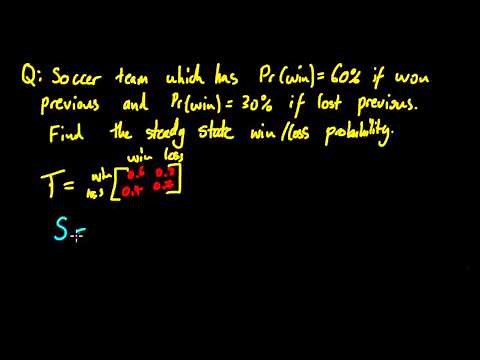 Q: Soccer team which has Pr(win)=60% if won
previous and Pr(win)=30% if lost previous.
Find the steady state win/loss probability.
win loss
T= win 0.6 0.3
loss 0.4
S=